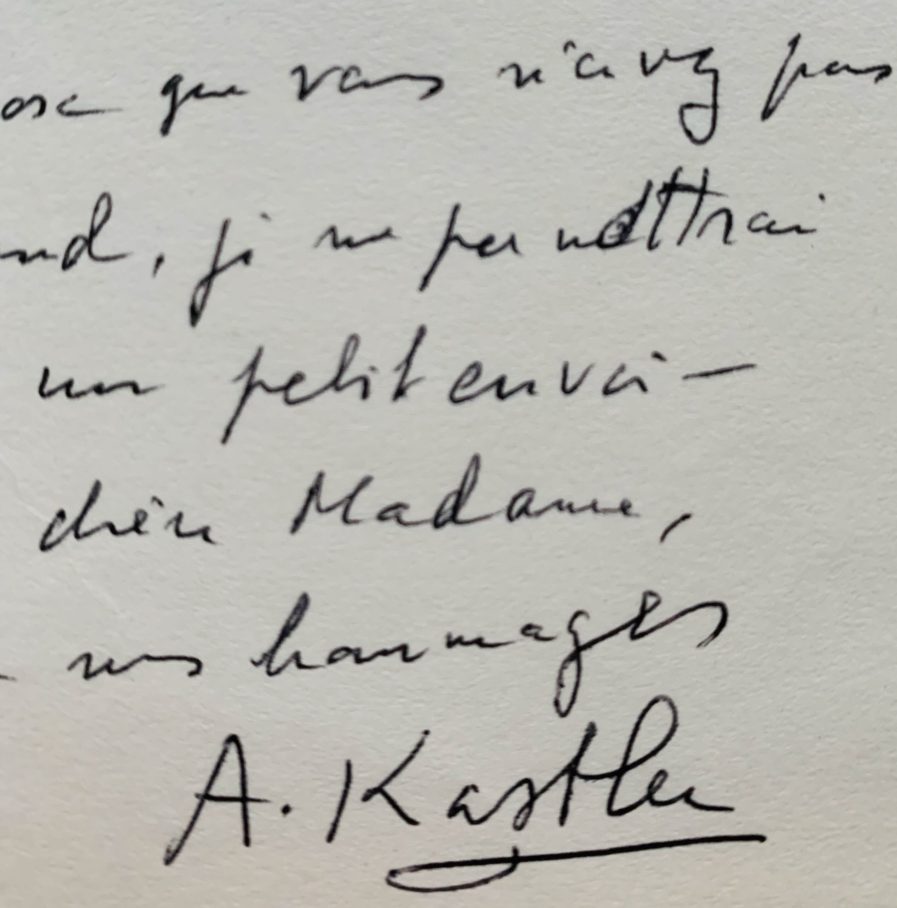 que vous n'avez pas
, je me permettrai
un petit envoi —
chère Madame,
mes hommages
A. Kastler